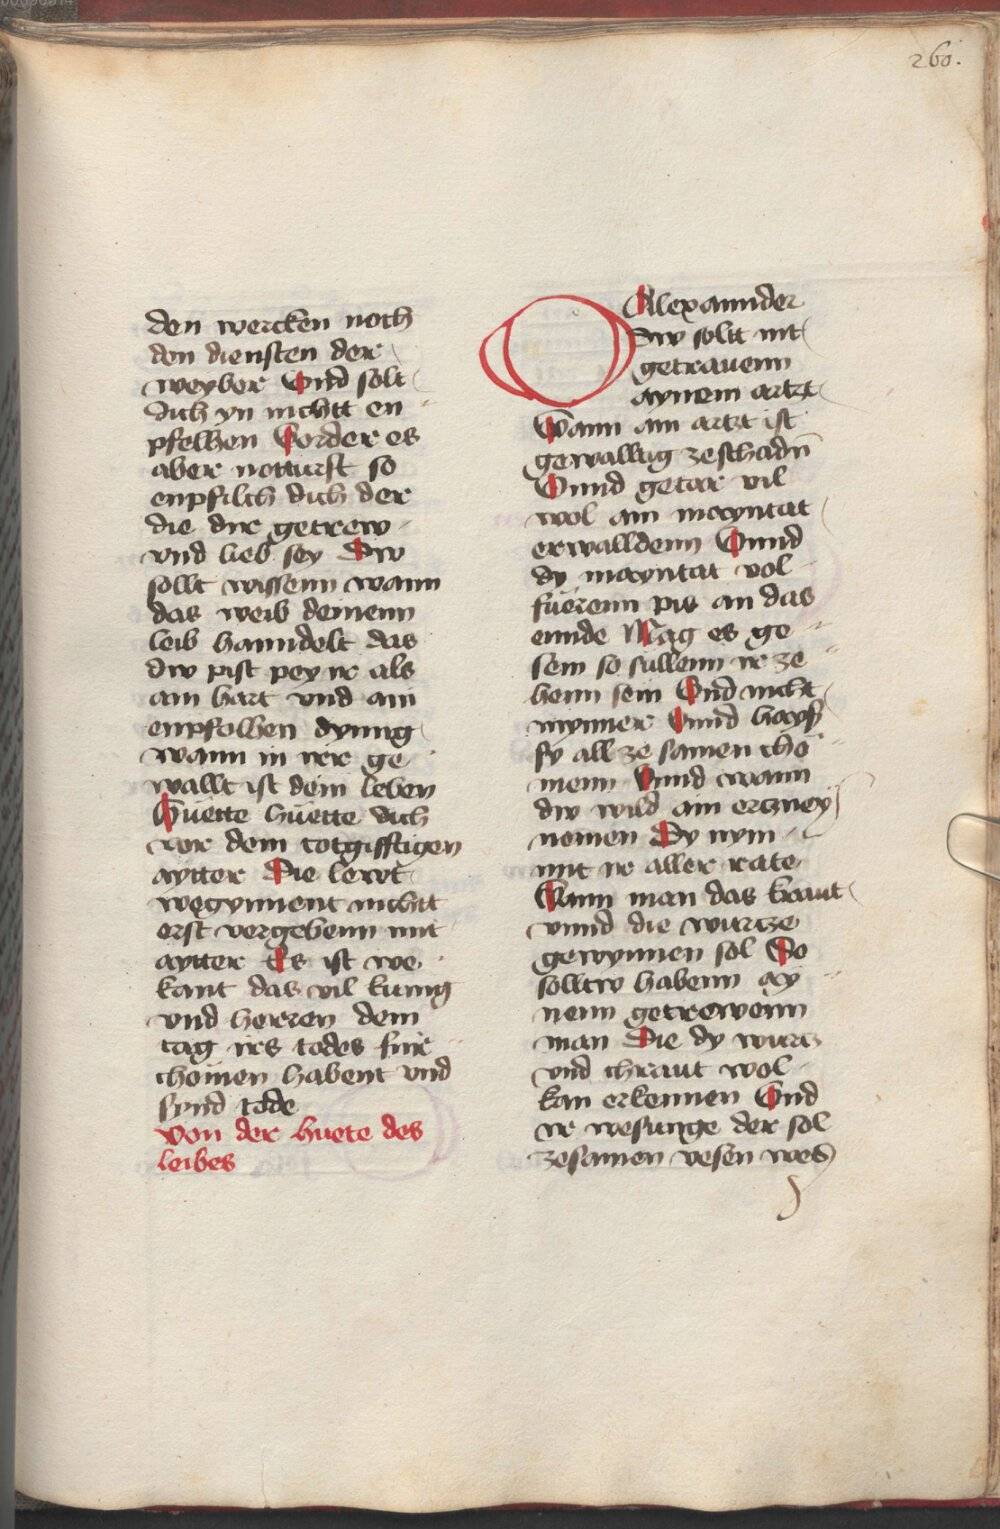 260.
den wercken noch
den diensten der
weyber Vnd solt
dich yn nichtt en
pfelhen Vorder es
aber notturft so
enpfilch dich der
die dir getrew
vnd lieb sey Dw
sollt wissenn wann
das weib deinenn
leib hanndelt das
dw pist pey ir als
ain hart vnd ain
enpfolhen dynng
wann in irer ge
wallt ist dein leben
Hüette hüette dich
vor dem totgifftigen
aytter Die lewt
wegynnent nichtt
erst vergebenn mit
aytter Es ist we
kant das vil kunig
vnd herren dem
tag irs todes für
chömen habent vnd
synd tode
von der huete des
leibes
O Alexannder
dw solt nit
getrauenn
aynem artzt
Wann ain artzt ist
gewalltig zeschadn̄
Vnnd getar vil
wol ain mayntat
erwalldenn Vnnd
dy mayntat vol
füerenn pis an das
ennde Mag es ge
sein so süllenn ir ze
henn sein Vnd nicht
mynner Vnnd hayß
sy all ze samen cho
menn Vnnd wann
dw wild ain ertzney
nemen Dy nym
mit ir aller rate
Wann man das kraut
vnnd die wurtze
gewynnen sol So
solltw habenn ay
nenn getrewenn
man Die dy wurtz
vnd chraut wol
kan erkennen Vnd
ir wesunge der sol
zesamen lesen wes